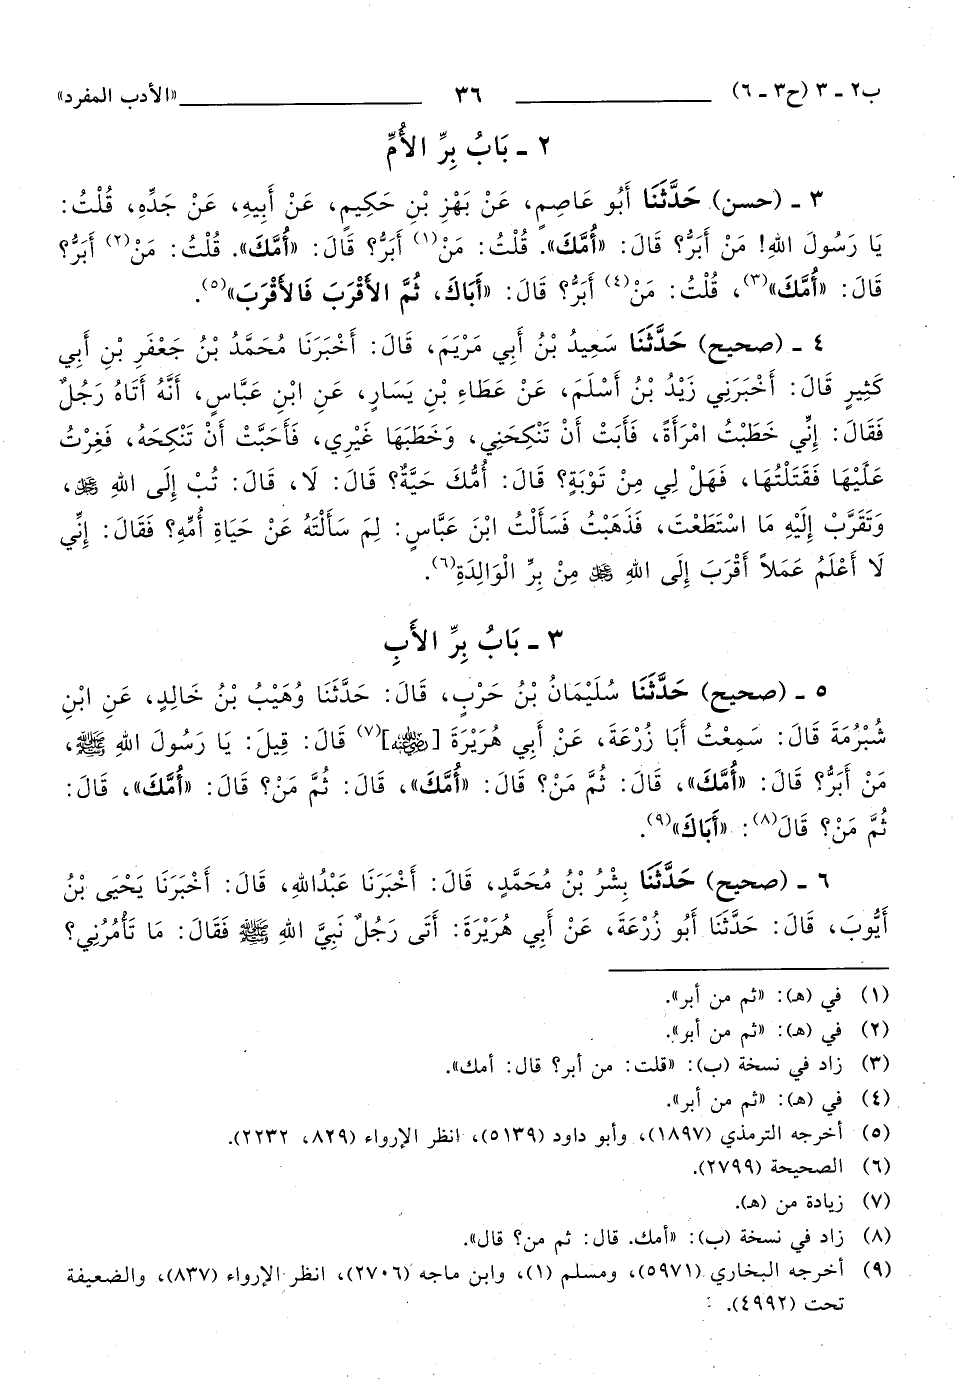 ب٢ - ٣ (ح٣ - ٦) ٣٦ «الأدب المفرد»
٢ - بَابُ بِرِّ الأُمِّ
٣ - (حسن) حَدَّثَنَا أَبُو عَاصِمٍ، عَنْ بَهْزِ بْنِ حَكِيمٍ، عَنْ أَبِيهِ، عَنْ جَدِّهِ، قُلْتُ:
يَا رَسُولَ اللهِ! مَنْ أَبَرُّ؟ قَالَ: «أُمَّكَ». قُلْتُ: مَنْ(١) أَبَرُّ؟ قَالَ: «أُمَّكَ». قُلْتُ: مَنْ(٢) أَبَرُّ؟
قَالَ: «أُمَّكَ»(٣)، قُلْتُ: مَنْ(٤) أَبَرُّ؟ قَالَ: «أَبَاكَ، ثُمَّ الأَقْرَبَ فَالأَقْرَبَ»(٥).
٤ - (صحيح) حَدَّثَنَا سَعِيدُ بْنُ أَبِي مَرْيَمَ، قَالَ: أَخْبَرَنَا مُحَمَّدُ بْنُ جَعْفَرِ بْنِ أَبِي
كَثِيرٍ قَالَ: أَخْبَرَنِي زَيْدُ بْنُ أَسْلَمَ، عَنْ عَطَاءِ بْنِ يَسَارٍ، عَنِ ابْنِ عَبَّاسٍ، أَنَّهُ أَتَاهُ رَجُلٌ
فَقَالَ: إِنِّي خَطَبْتُ امْرَأَةً، فَأَبَتْ أَنْ تَنْكِحَنِي، وَخَطَبَهَا غَيْرِي، فَأَحَبَّتْ أَنْ تَنْكِحَهُ، فَغِرْتُ
عَلَيْهَا فَقَتَلْتُهَا، فَهَلْ لِي مِنْ تَوْبَةٍ؟ قَالَ: أُمُّكَ حَيَّةٌ؟ قَالَ: لَا، قَالَ: تُبْ إِلَى اللهِ ﷻ،
وَتَقَرَّبْ إِلَيْهِ مَا اسْتَطَعْتَ، فَذَهَبْتُ فَسَأَلْتُ ابْنَ عَبَّاسٍ: لِمَ سَأَلْتَهُ عَنْ حَيَاةِ أُمِّهِ؟ فَقَالَ: إِنِّي
لَا أَعْلَمُ عَمَلاً أَقْرَبَ إِلَى اللهِ ﷻ مِنْ بِرِّ الْوَالِدَةِ(٦).
٣ - بَابُ بِرِّ الأَبِ
٥ - (صحيح) حَدَّثَنَا سُلَيْمَانُ بْنُ حَرْبٍ، قَالَ: حَدَّثَنَا وُهَيْبُ بْنُ خَالِدٍ، عَنِ ابْنِ
شُبْرُمَةَ قَالَ: سَمِعْتُ أَبَا زُرْعَةَ، عَنْ أَبِي هُرَيْرَةَ [رضي الله عنه](٧) قَالَ: قِيلَ: يَا رَسُولَ اللهِ ﷺ،
مَنْ أَبَرُّ؟ قَالَ: «أُمَّكَ»، قَالَ: ثُمَّ مَنْ؟ قَالَ: «أُمَّكَ»، قَالَ: ثُمَّ مَنْ؟ قَالَ: «أُمَّكَ»، قَالَ:
ثُمَّ مَنْ؟ قَالَ(٨): «أَبَاكَ»(٩).
٦ - (صحيح) حَدَّثَنَا بِشْرُ بْنُ مُحَمَّدٍ، قَالَ: أَخْبَرَنَا عَبْدُاللهِ، قَالَ: أَخْبَرَنَا يَحْيَى بْنُ
أَيُّوبَ، قَالَ: حَدَّثَنَا أَبُو زُرْعَةَ، عَنْ أَبِي هُرَيْرَةَ: أَتَى رَجُلٌ نَبِيَّ اللهِ ﷺ فَقَالَ: مَا تَأْمُرُنِي؟
(١) في (هـ): «ثم من أبر».
(٢) في (هـ): «ثم من أبر».
(٣) زاد في نسخة (ب): «قلت: من أبر؟ قال: أمك».
(٤) في (هـ): «ثم من أبر».
(٥) أخرجه الترمذي (١٨٩٧)، وأبو داود (٥١٣٩)، انظر الإرواء (٨٢٩، ٢٢٣٢).
(٦) الصحيحة (٢٧٩٩).
(٧) زيادة من (هـ).
(٨) زاد في نسخة (ب): «أمك. قال: ثم من؟ قال».
(٩) أخرجه البخاري (٥٩٧١)، ومسلم (١)، وابن ماجه (٢٧٠٦)، انظر الإرواء (٨٣٧)، والضعيفة
تحت (٤٩٩٢).